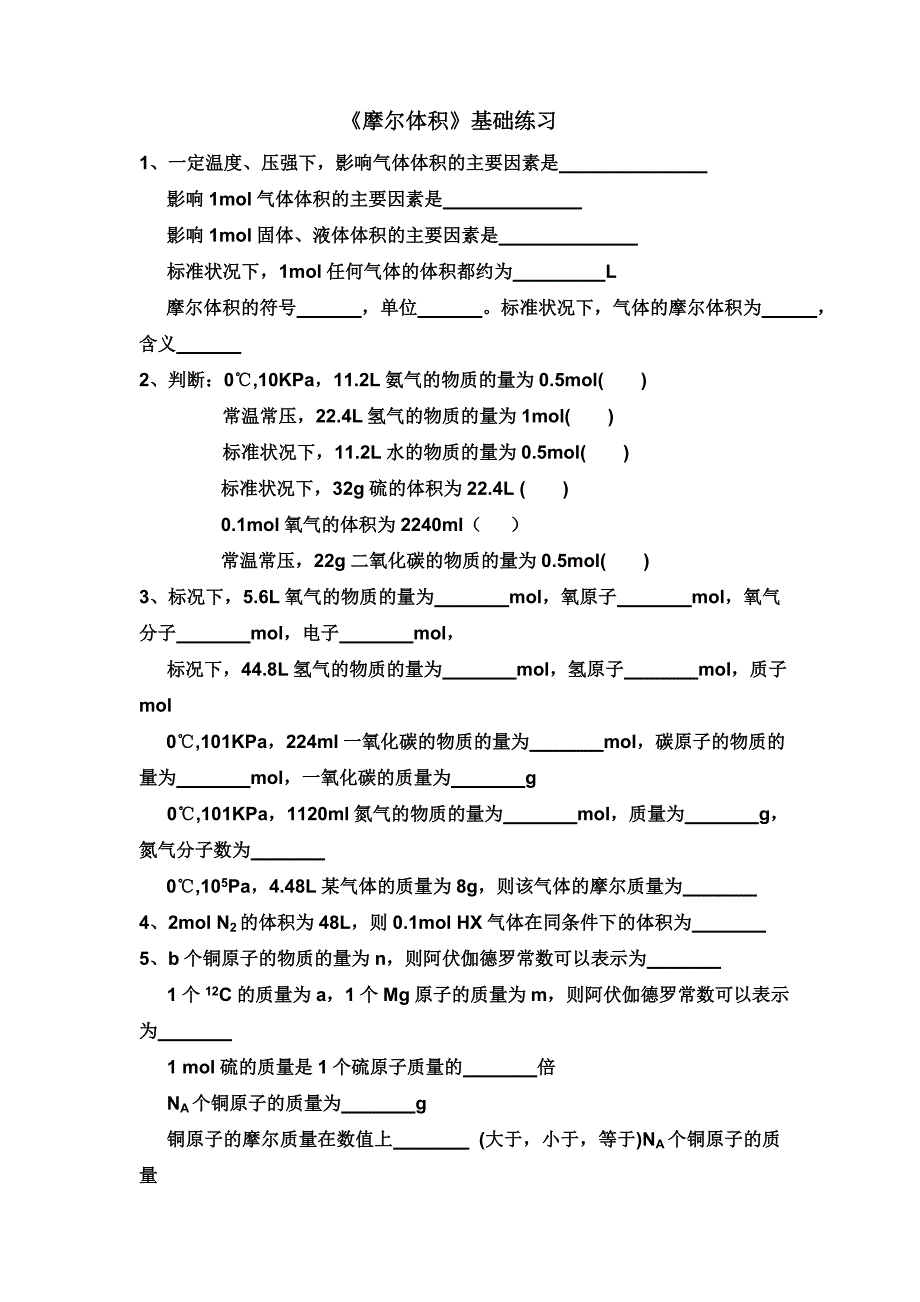 《摩尔体积》基础练习
1、一定温度、压强下，影响气体体积的主要因素是________________
影响 1mol 气体体积的主要因素是_______________
影响 1mol 固体、液体体积的主要因素是_______________
标准状况下，1mol 任何气体的体积都约为__________L
摩尔体积的符号_______，单位_______。标准状况下，气体的摩尔体积为______，
含义_______
2、判断：0℃,10KPa，11.2L 氨气的物质的量为 0.5mol(      )
常温常压，22.4L 氢气的物质的量为 1mol(      )
标准状况下，11.2L 水的物质的量为 0.5mol(      )
标准状况下，32g 硫的体积为 22.4L (      )
0.1mol 氧气的体积为 2240ml（     ）
常温常压，22g 二氧化碳的物质的量为 0.5mol(      )
3、标况下，5.6L 氧气的物质的量为________mol，氧原子________mol，氧气
分子________mol，电子________mol，
标况下，44.8L 氢气的物质的量为________mol，氢原子________mol，质子
mol
0℃,101KPa，224ml 一氧化碳的物质的量为________mol，碳原子的物质的
量为________mol，一氧化碳的质量为________g
0℃,101KPa，1120ml 氮气的物质的量为________mol，质量为________g，
氮气分子数为________
0℃,10⁵Pa，4.48L 某气体的质量为 8g，则该气体的摩尔质量为________
4、2mol N₂ 的体积为 48L，则 0.1mol HX 气体在同条件下的体积为________
5、b 个铜原子的物质的量为 n，则阿伏伽德罗常数可以表示为________
1 个 ¹²C 的质量为 a，1 个 Mg 原子的质量为 m，则阿伏伽德罗常数可以表示
为________
1 mol 硫的质量是 1 个硫原子质量的________倍
Nᴀ 个铜原子的质量为________g
铜原子的摩尔质量在数值上________ (大于，小于，等于)Nᴀ 个铜原子的质
量